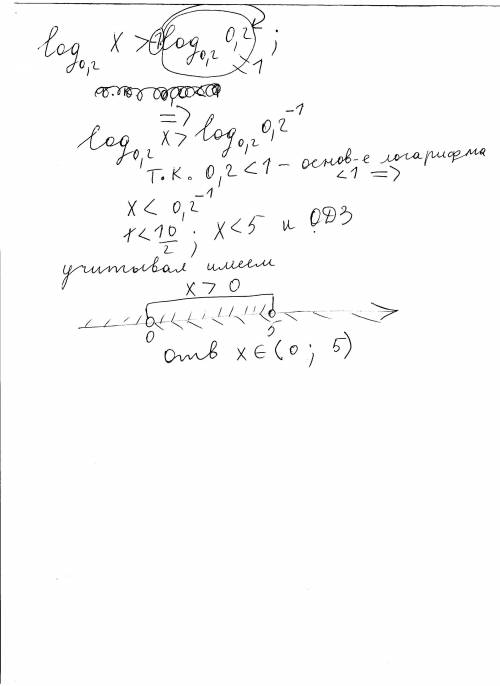 log₀,₂ x > -1 log₀,₂ 0,2 ;
1
=>
log₀,₂ x > log₀,₂ 0,2⁻¹
т.к. 0,2 < 1 – основ-е логарифма
< 1 =>
x < 0,2⁻¹
x < 10/2 ; x < 5 и ОДЗ
учитывая имеем
x > 0
0 5
отв x ∈ (0 ; 5)